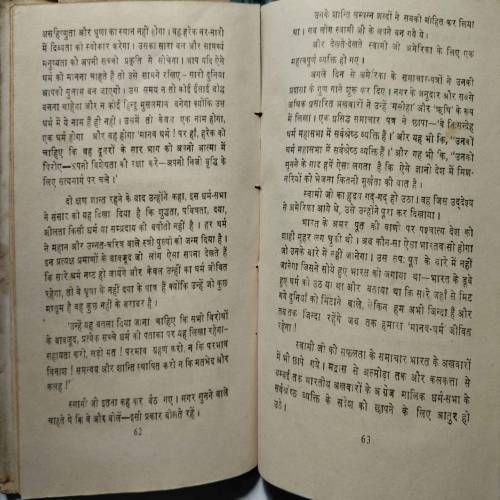 असहिष्णुता और घृणा का स्थान नहीं होगा। वह हरेक नर-नारी
में दिव्यता को स्वीकार करेगा। उसका सारा बल और सामर्थ्य
मनुष्यता को अपनी सच्ची प्रकृति से सींचेगा। आप यदि ऐसे
धर्म को मानना चाहते हैं तो उसे सामने रखिए—सारी दुनिया
आपकी गुलाम बन जाएगी। उस समय न तो कोई ईसाई बौद्ध
बनना चाहेगा और न कोई हिन्दू मुसलमान बनेगा क्योंकि उस
धर्म में ये नाम हैं ही नहीं। उसमें तो केवल एक नाम होगा,
एक धर्म होगा और वह होगा 'मानव धर्म'! पर हाँ, हरेक को
चाहिए कि वह दूसरों के सार भाग को अपनी आत्मा में
पिरोए—अपनी विशेषता की रक्षा करे—अपनी निजी बुद्धि के
लिए सत्यमार्ग पर चले।'
दो क्षण शान्त रहने के बाद उन्होंने कहा, इस धर्म-सभा
ने संसार को यह दिखा दिया है कि शुद्धता, पवित्रता, दया,
शीलता किसी धर्म या सम्प्रदाय की बपौती नहीं है। हर धर्म
ने महान और उन्नत-चरित्र वाले स्त्री पुरुषों को जन्म दिया है।
इन प्रत्यक्ष प्रमाणों के बावजूद जो लोग ऐसा सपना देखते हैं
कि सारे धर्म नष्ट हो जायेंगे और केवल उन्हीं का धर्म जीवित
रहेगा, तो वे घृणा के नहीं दया के पात्र हैं क्योंकि उन्हें जो कुछ
मालूम है वह कुछ नहीं के बराबर है।
'उन्हें यह बतला दिया जाना चाहिए कि सभी विरोधों
के बावजूद, प्रत्येक सच्चे धर्म की पताका पर यह लिखा रहेगा—
सहायता करो, लड़ो मत! परभाव ग्रहण करो, न कि परभाव
विनाश! समन्वय और शान्ति स्थापित करो न कि मतभेद और
कलह!'
स्वामी जी इतना कह कर बैठ गए। मगर सुनने वाले
चाहते थे कि वे और बोलें—इसी प्रकार बोलते रहें।
62
उनके शान्ति सम्पन्न शब्दों ने सबको मोहित कर लिया
था। सब लोग स्वामी जी के अपने बन गये थे।
और देखते-देखते स्वामी जी अमेरिका के लिए एक
महत्वपूर्ण व्यक्ति हो गए।
अगले दिन से अमेरिका के समाचार-पत्रों ने उनकी
प्रशंसा के गुण गाने शुरू कर दिए। नगर के अनुदार और सबसे
अधिक प्रसारित अखबारों ने उन्हें 'मसीहा' और 'ऋषि' के रूप
में लिखा। एक प्रसिद्ध समाचार पत्र ने छापा—'वे निःसन्देह
धर्म महासभा में सर्वश्रेष्ठ व्यक्ति हैं।' और यह भी कि, "उनको
धर्म महासभा में सर्वश्रेष्ठ व्यक्ति हैं।' और यह भी कि, "उनको
सुनने के बाद हमें ऐसा लगता है कि ऐसे ज्ञानी देश में मिश-
नरियों को भेजना कितनी मूर्खता की बात है।
स्वामी जी का हृदय गद्-गद् हो उठा। वह जिस उद्देश्य
से अमेरिका आये थे, उसे उन्होंने पूरा कर दिखाया।
भारत के अमर पूत की वाणी पर पश्चात्य देश की
शाही मुहर लग चुकी थी। अब कौन-सा ऐसा भारतवासी होगा
जो उनके बारे में नहीं जानेगा। उस तपःपूत के बारे में नहीं
जानेगा जिसने सोये हुए भारत को जगाया था—भारत के डूबे
हुए धर्म को उठाया था और बताया था कि सारे जहाँ से मिट
गये दुनियाँ को मिटाने वाले, लेकिन हम अभी जिन्दा हैं और
तब तक जिन्दा रहेंगे जब तक हमारा 'मानव-धर्म' जीवित
रहेगा।
स्वामी जी की सफलता के समाचार भारत के अखबारों
में भी छापे गये। मद्रास से अल्मोड़ा तक और कलकत्ता से
बम्बई तक भारतीय अखबारों के अंग्रेज मालिक धर्म-सभा के
सर्वश्रेष्ठ व्यक्ति के संदेश को छापने के लिए आतुर हो
उठे।
63